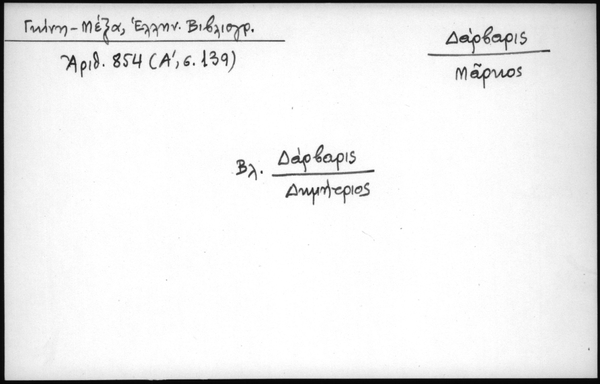 Γκίνη-Μέξα, Ἑλλην. Βιβλιογρ.
Ἀριθ. 854 (Α', σ. 139)
Δάρβαρις
Μᾶρκος
Βλ. Δάρβαρις
Δημήτριος